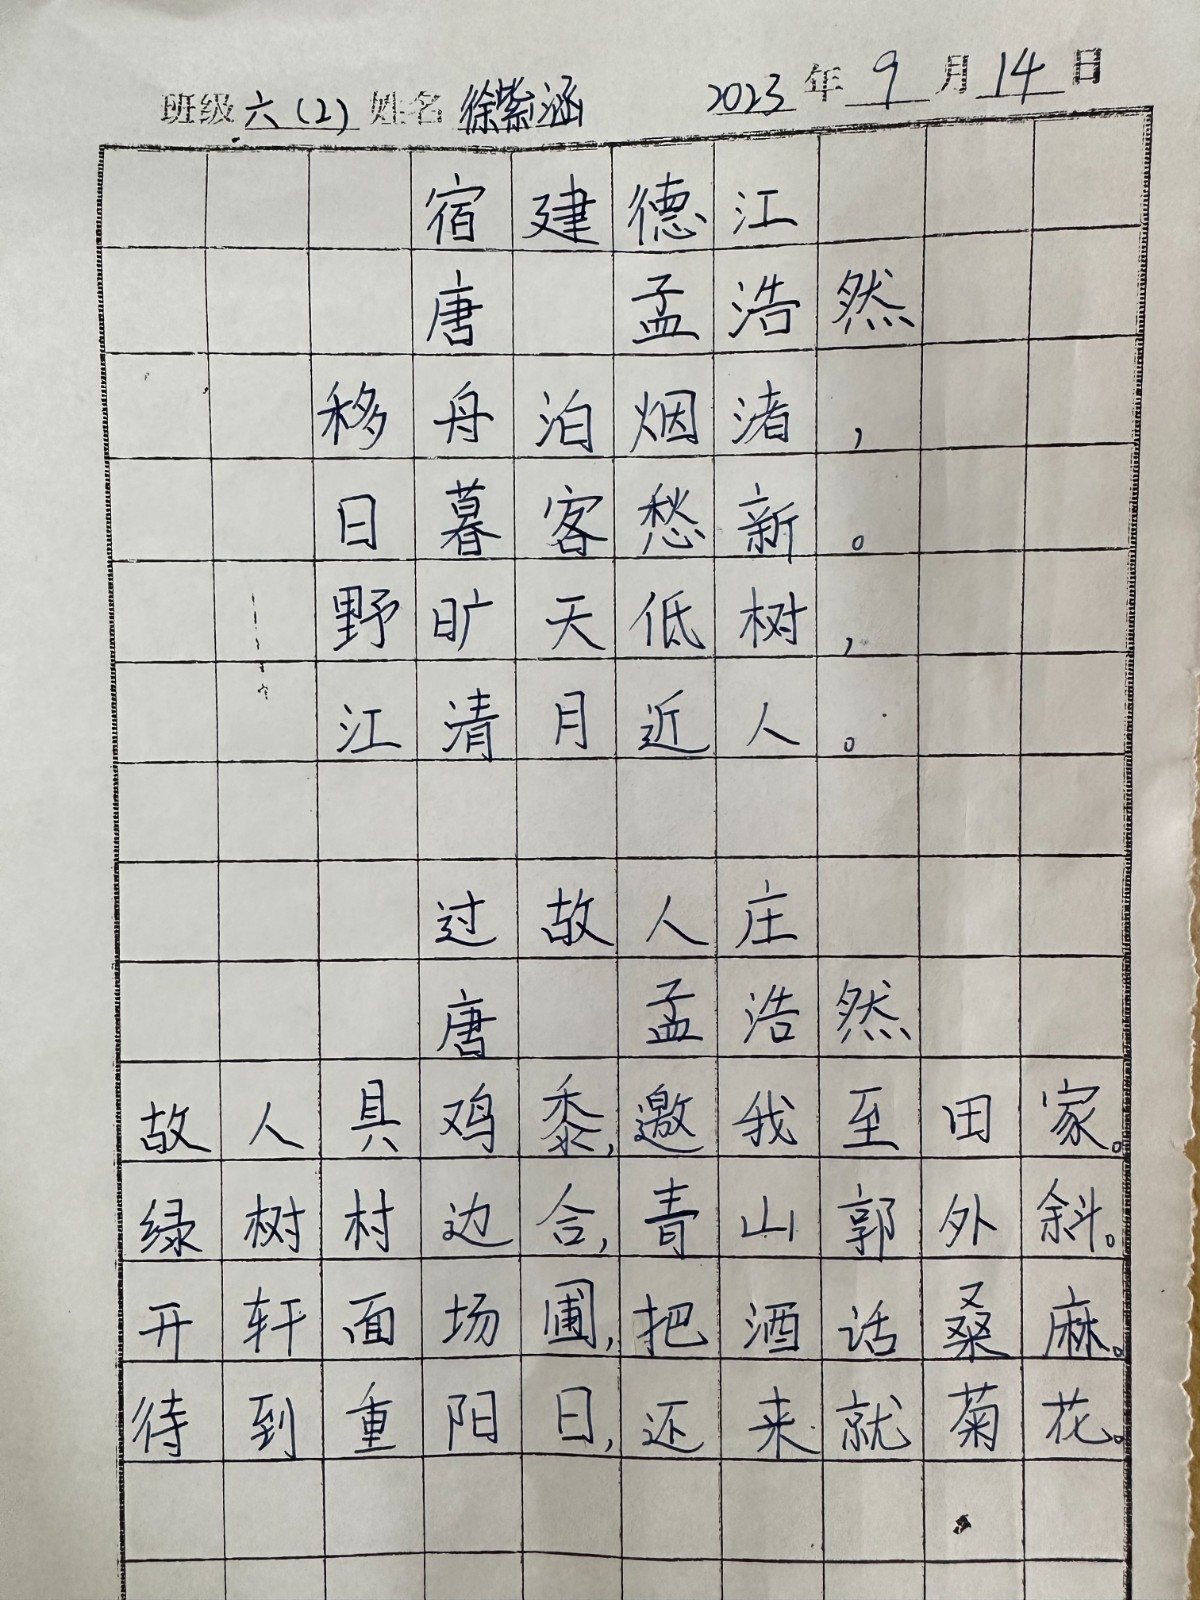 班级 六(2) 姓名 徐紫涵 2023 年 9 月 14 日
宿建德江
唐 孟浩然
移舟泊烟渚，
日暮客愁新。
野旷天低树，
江清月近人。
过故人庄
唐 孟浩然
故人具鸡黍，邀我至田家。
绿树村边合，青山郭外斜。
开轩面场圃，把酒话桑麻。
待到重阳日，还来就菊花。